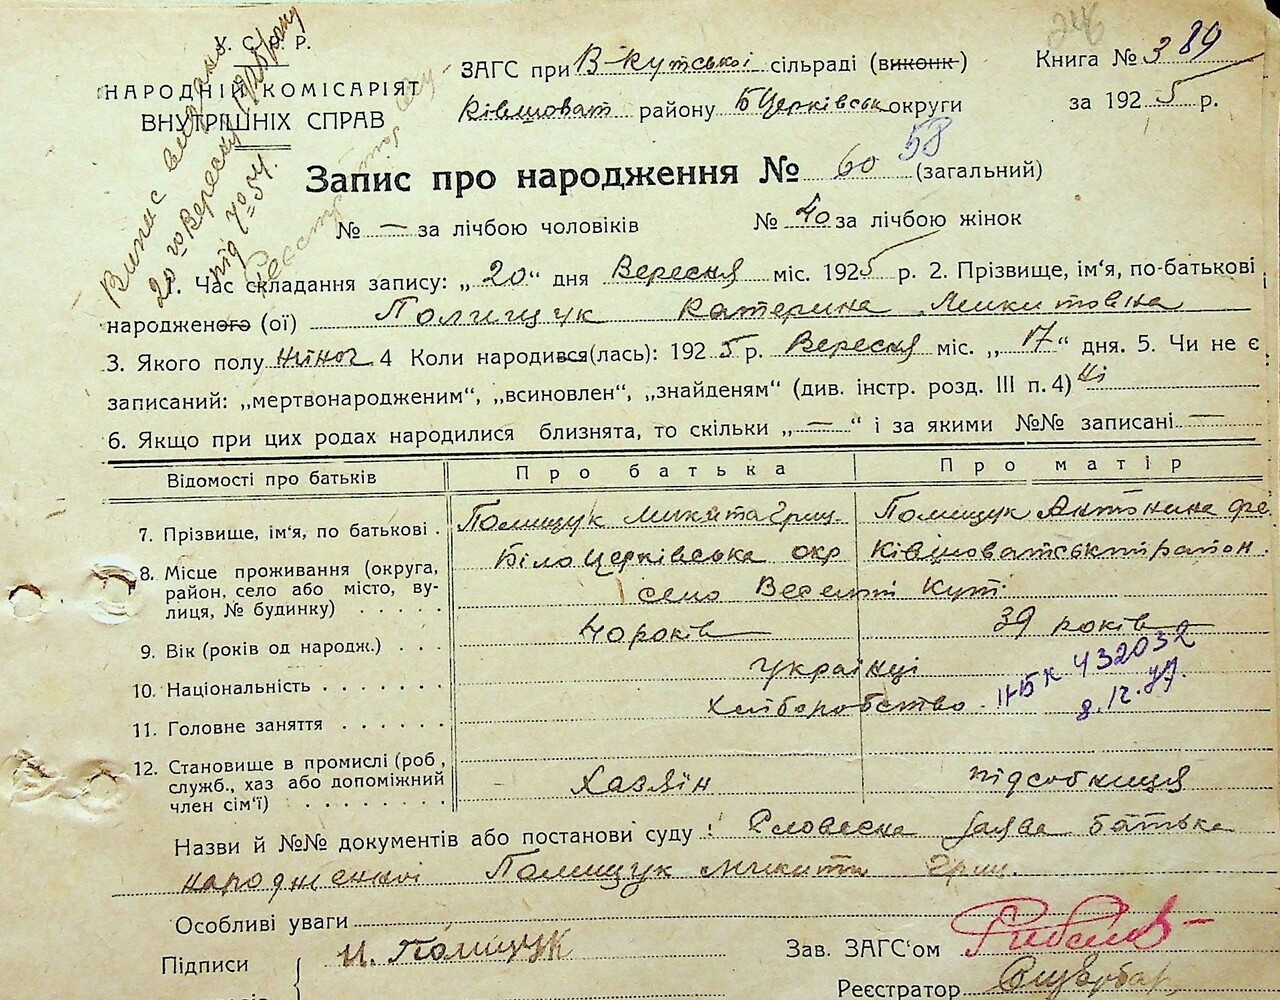 У. С. Р. Р.
НАРОДНІЙ КОМІСАРІЯТ
ВНУТРІШНІХ СПРАВ
ЗАГС при В-Кутській сільраді (виконк)
Ківшоват району Б Церківськ округи
246
Книга № 3 89
за 1925 р.
Запис про народження № 60 58 (загальний)
№ — за лічбою чоловіків № 40 за лічбою жінок
Випис видано
20 го Вересня
під № 54.
1. Час складання запису: „20“ дня Вересня міс. 1925 р. 2. Прізвище, ім'я, по-батькові
народженого (ої) Полищук Катерина Микитовна
3. Якого полу жіног 4 Коли народився(лась): 1925 р. Вересня міс. „17“ дня. 5. Чи не є
записаний: „мертвонародженим“, „всиновлен“, „знайденям“ (див. інстр. розд. III п. 4) Ні
6. Якщо при цих родах народилися близнята, то скільки „—“ і за якими №№ записані —
Відомості про батьків Про батька Про матір
7. Прізвище, ім'я, по батькові . Полищук Микита Гриц. Полищук Антонина Фе
8. Місце проживання (округа, район, село або місто, вулиця, № будинку) Білоцерківська окр Ківшоватський район.
село Веселий Кут
9. Вік (років од народж.) . . . 40 років 39 років
10. Національність . . . . . . . українці
11. Головне заняття . . . . . . Хліборобство. II-БК 432032
8.12.
12. Становище в промислі (роб, служб., хаз або допоміжний член сім'ї) . . . . . . . . Хазяїн підсобниця
Назви й №№ документів або постанови суду: Словесна заява батька
народженної Полищук Микити Гриц.
Особливі уваги
Підписи Н. Полищук
Зав. ЗАГС'ом
Реєстратор